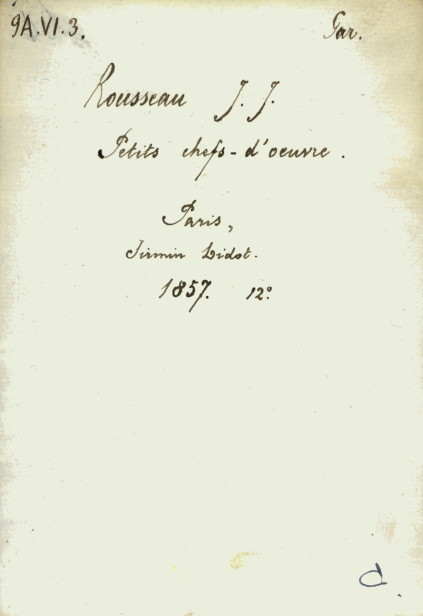 9A.VI.3. Gar.
Rousseau J. J.
Petits chefs-d'oeuvre.
Paris,
Firmin Didot.
1857. 12°
d